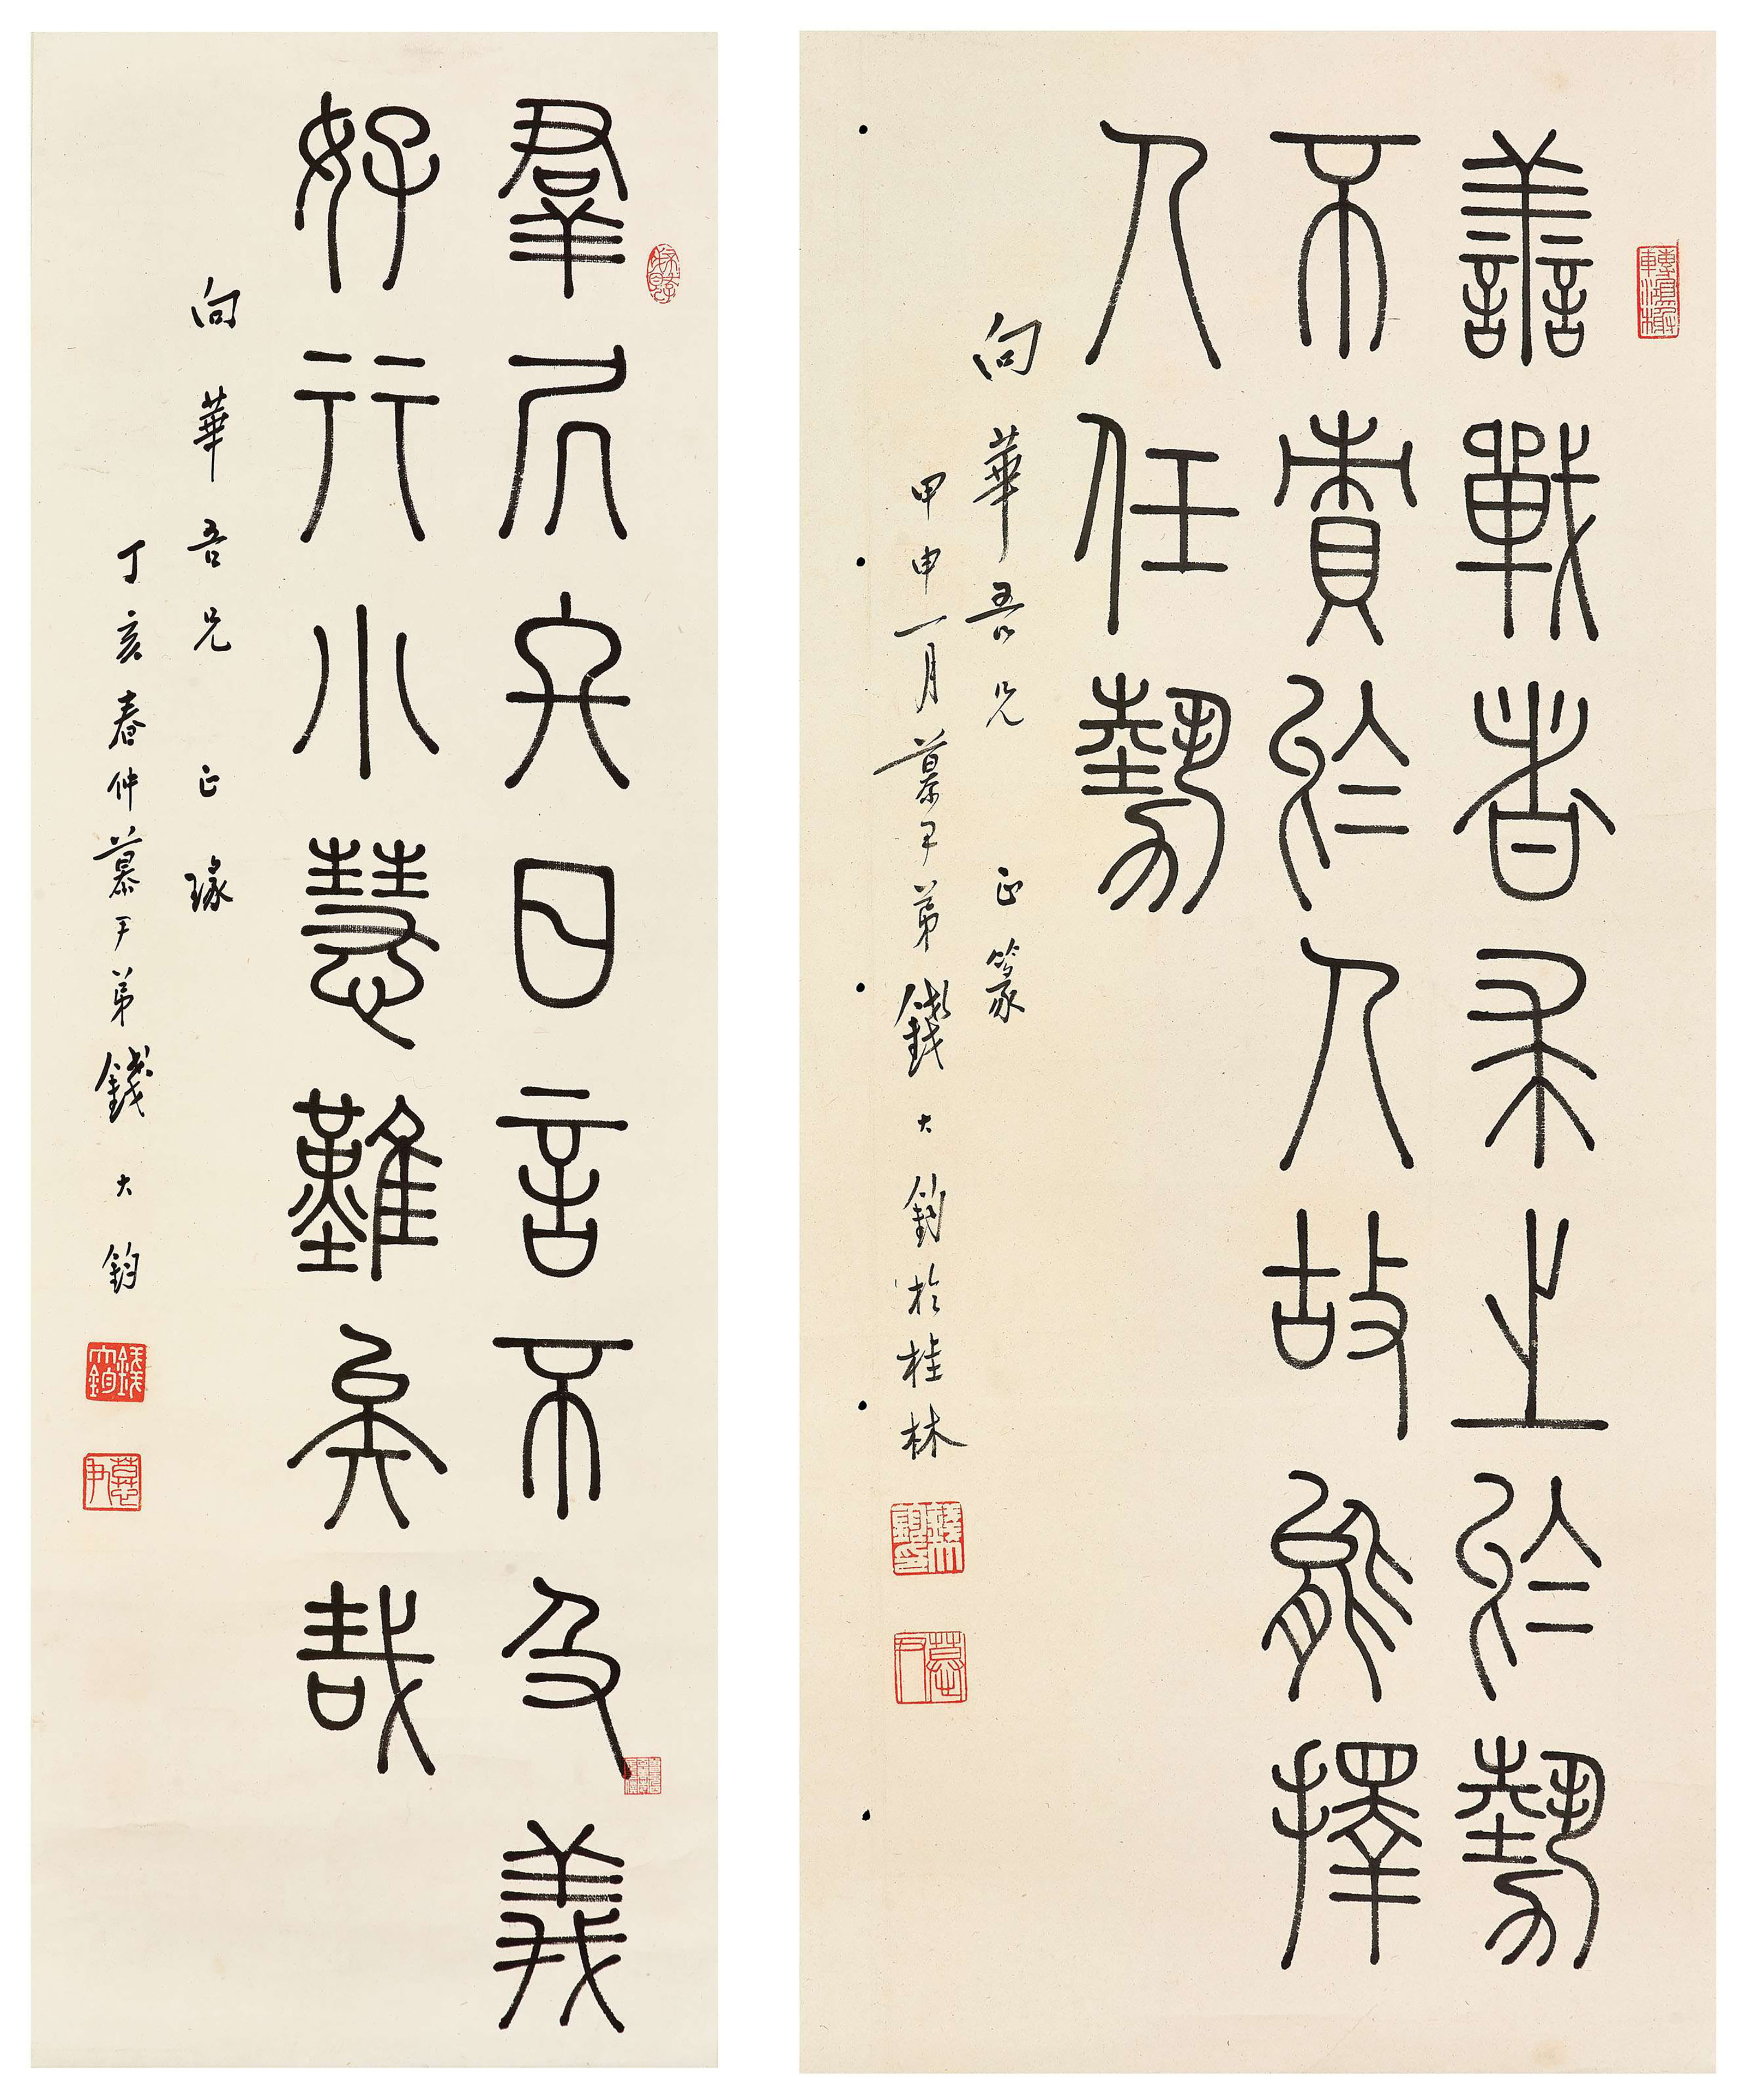 善戰者求之於勢
不責於人故能擇
人任勢
向華吾兄 正篆
甲申一月慕尹弟錢大鈞於桂林
錢大鈞印
慕尹
羣凥終日言不及義
好行小慧難矣哉
向華吾兄 正瑑
丁亥春仲慕尹弟錢大鈞
錢大鈞
慕尹